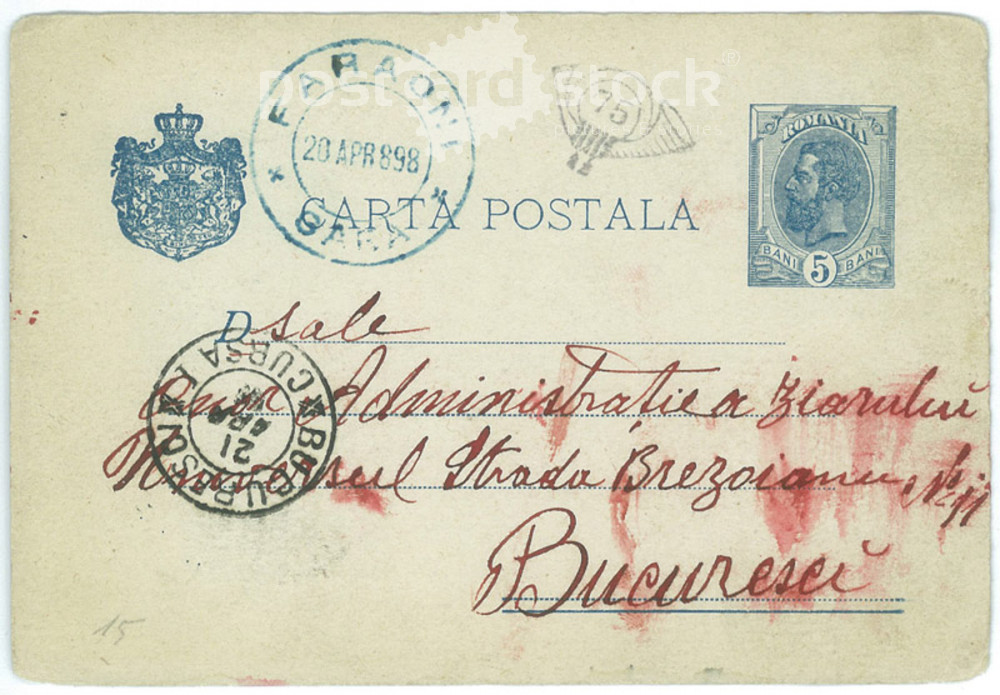 post card stock®
FARAONI
20 APR 898
GARA
75
ROMANIA
BANI 5 BANI
CARTA POSTALA
D sale
Administratie a Ziarului
Universul Strada Brezoianu No 11
Bucuresci
BUCURESCI
CURSA I
21
APR
15